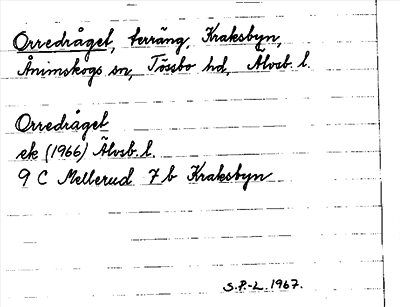 Orredråget, terräng, Kraksbyn,
Ånimskogs sn, Tössbo hd, Älvsb. l.
Orredråget
ek (1966) Älvsb. l.
9 C Mellerud 7 b Kraksbyn
S.P.-L. 1967.